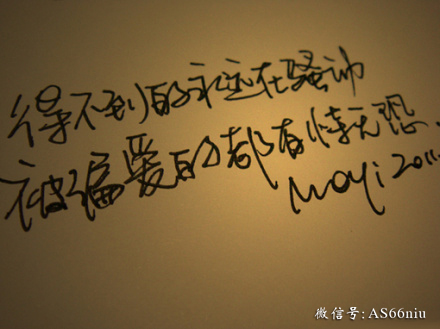 得不到的永远在骚动
被偏爱的都有恃无恐.
moyi 2011.
微信号:AS66niu